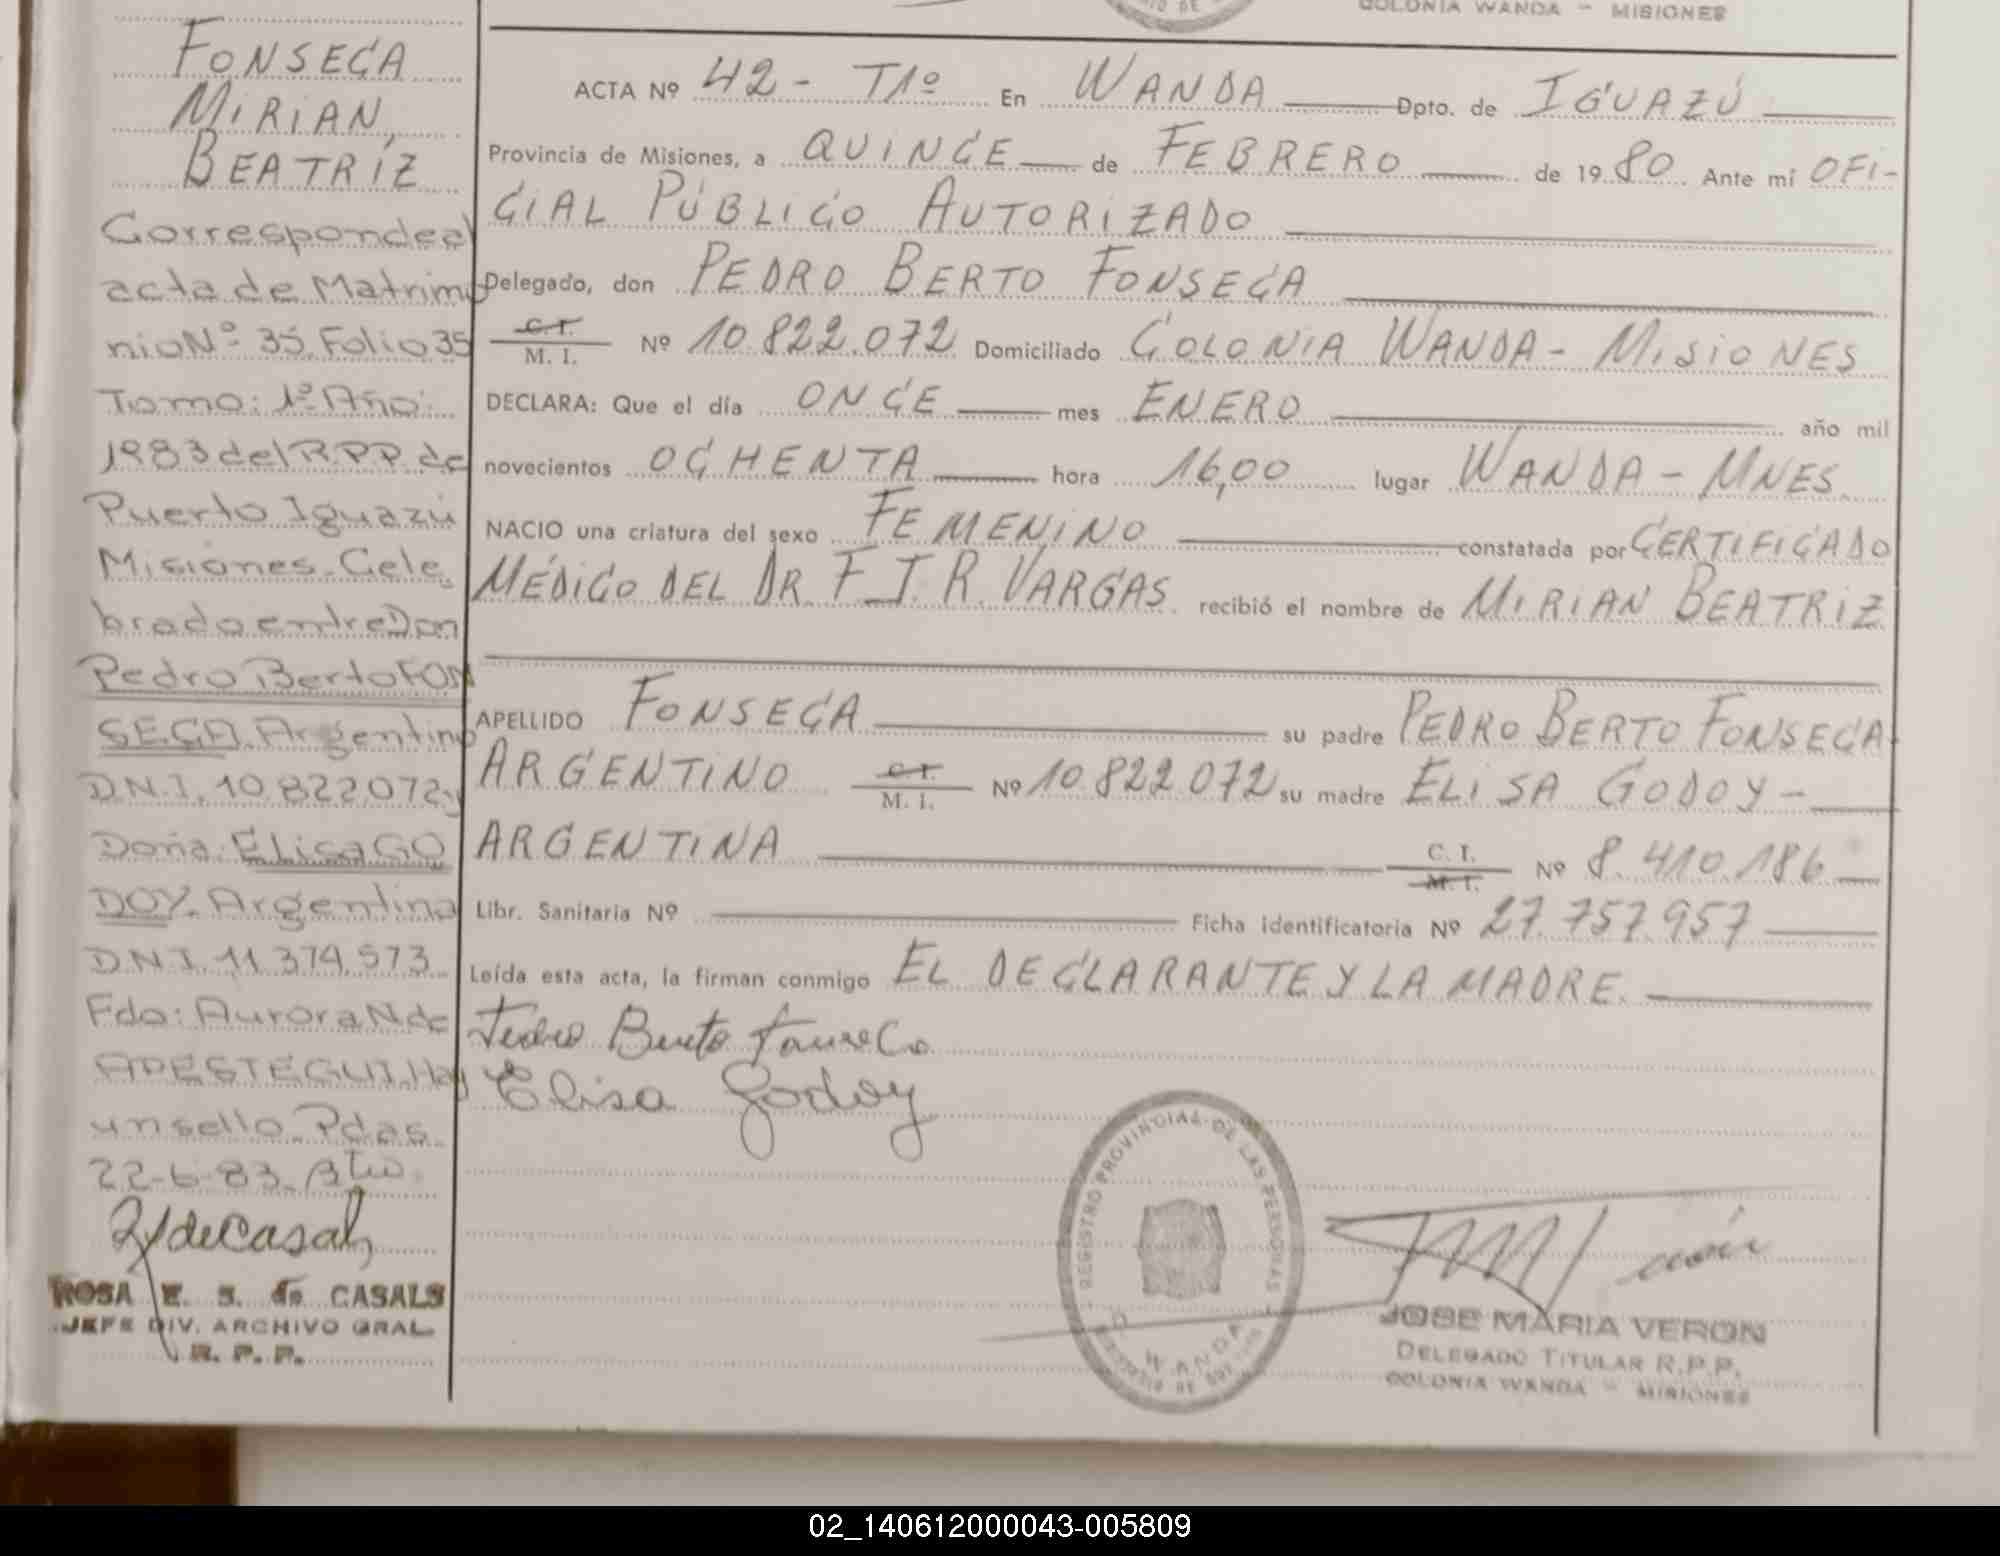 COLONIA WANDA - MISIONES
FONSECA
MIRIAN,
BEATRÍZ
Corresponde al
acta de Matrimo
nio Nº 35. Folio 35
Tomo: 1º Año:
1983 del R.P.P. de
Puerto Iguazú
Misiones. Cele
brado entre Don
Pedro Berto FON
SECA. Argentino
D.N.I. 10.822.072 y
Doña: Elisa GO
DOY. Argentina
D.N.I. 11.374.573
Fdo: Aurora N. de
APESTEGUI. Hay
un sello. Pdas
22-6-83.
R/ de Casals
ROSA E. S. de CASALS
JEFE DIV. ARCHIVO GRAL.
R. P. P.
ACTA Nº 42 - T1º En WANDA Dpto. de IGUAZÚ
Provincia de Misiones, a QUINCE de FEBRERO de 1980 Ante mí OFI-
CIAL PÚBLICO AUTORIZADO
Delegado, don PEDRO BERTO FONSECA
C. I.
M. I. Nº 10.822.072 Domiciliado COLONIA WANDA - MISIONES
DECLARA: Que el día ONCE mes ENERO año mil
novecientos OCHENTA hora 16,00 lugar WANDA - MNES
NACIO una criatura del sexo FEMENINO constatada por CERTIFICADO
MÉDICO DEL DR. F. J. R. VARGAS. recibió el nombre de MIRIAN BEATRÍZ
APELLIDO FONSECA su padre PEDRO BERTO FONSECA-
ARGENTINO C. I. M. I. Nº 10.822.072 su madre ELISA GODOY -
ARGENTINA C. I. M. I. Nº 8.410.186
Libr. Sanitaria Nº Ficha identificatoria Nº 27.757.957
Leída esta acta, la firman conmigo EL DECLARANTE Y LA MADRE.
Pedro Berto Fonseca
Elisa Godoy
REGISTRO PROVINCIAL DE LAS PERSONAS
WANDA
JOSE MARIA VERON
DELEGADO TITULAR R.P.P.
COLONIA WANDA - MISIONES
02_140612000043-005809